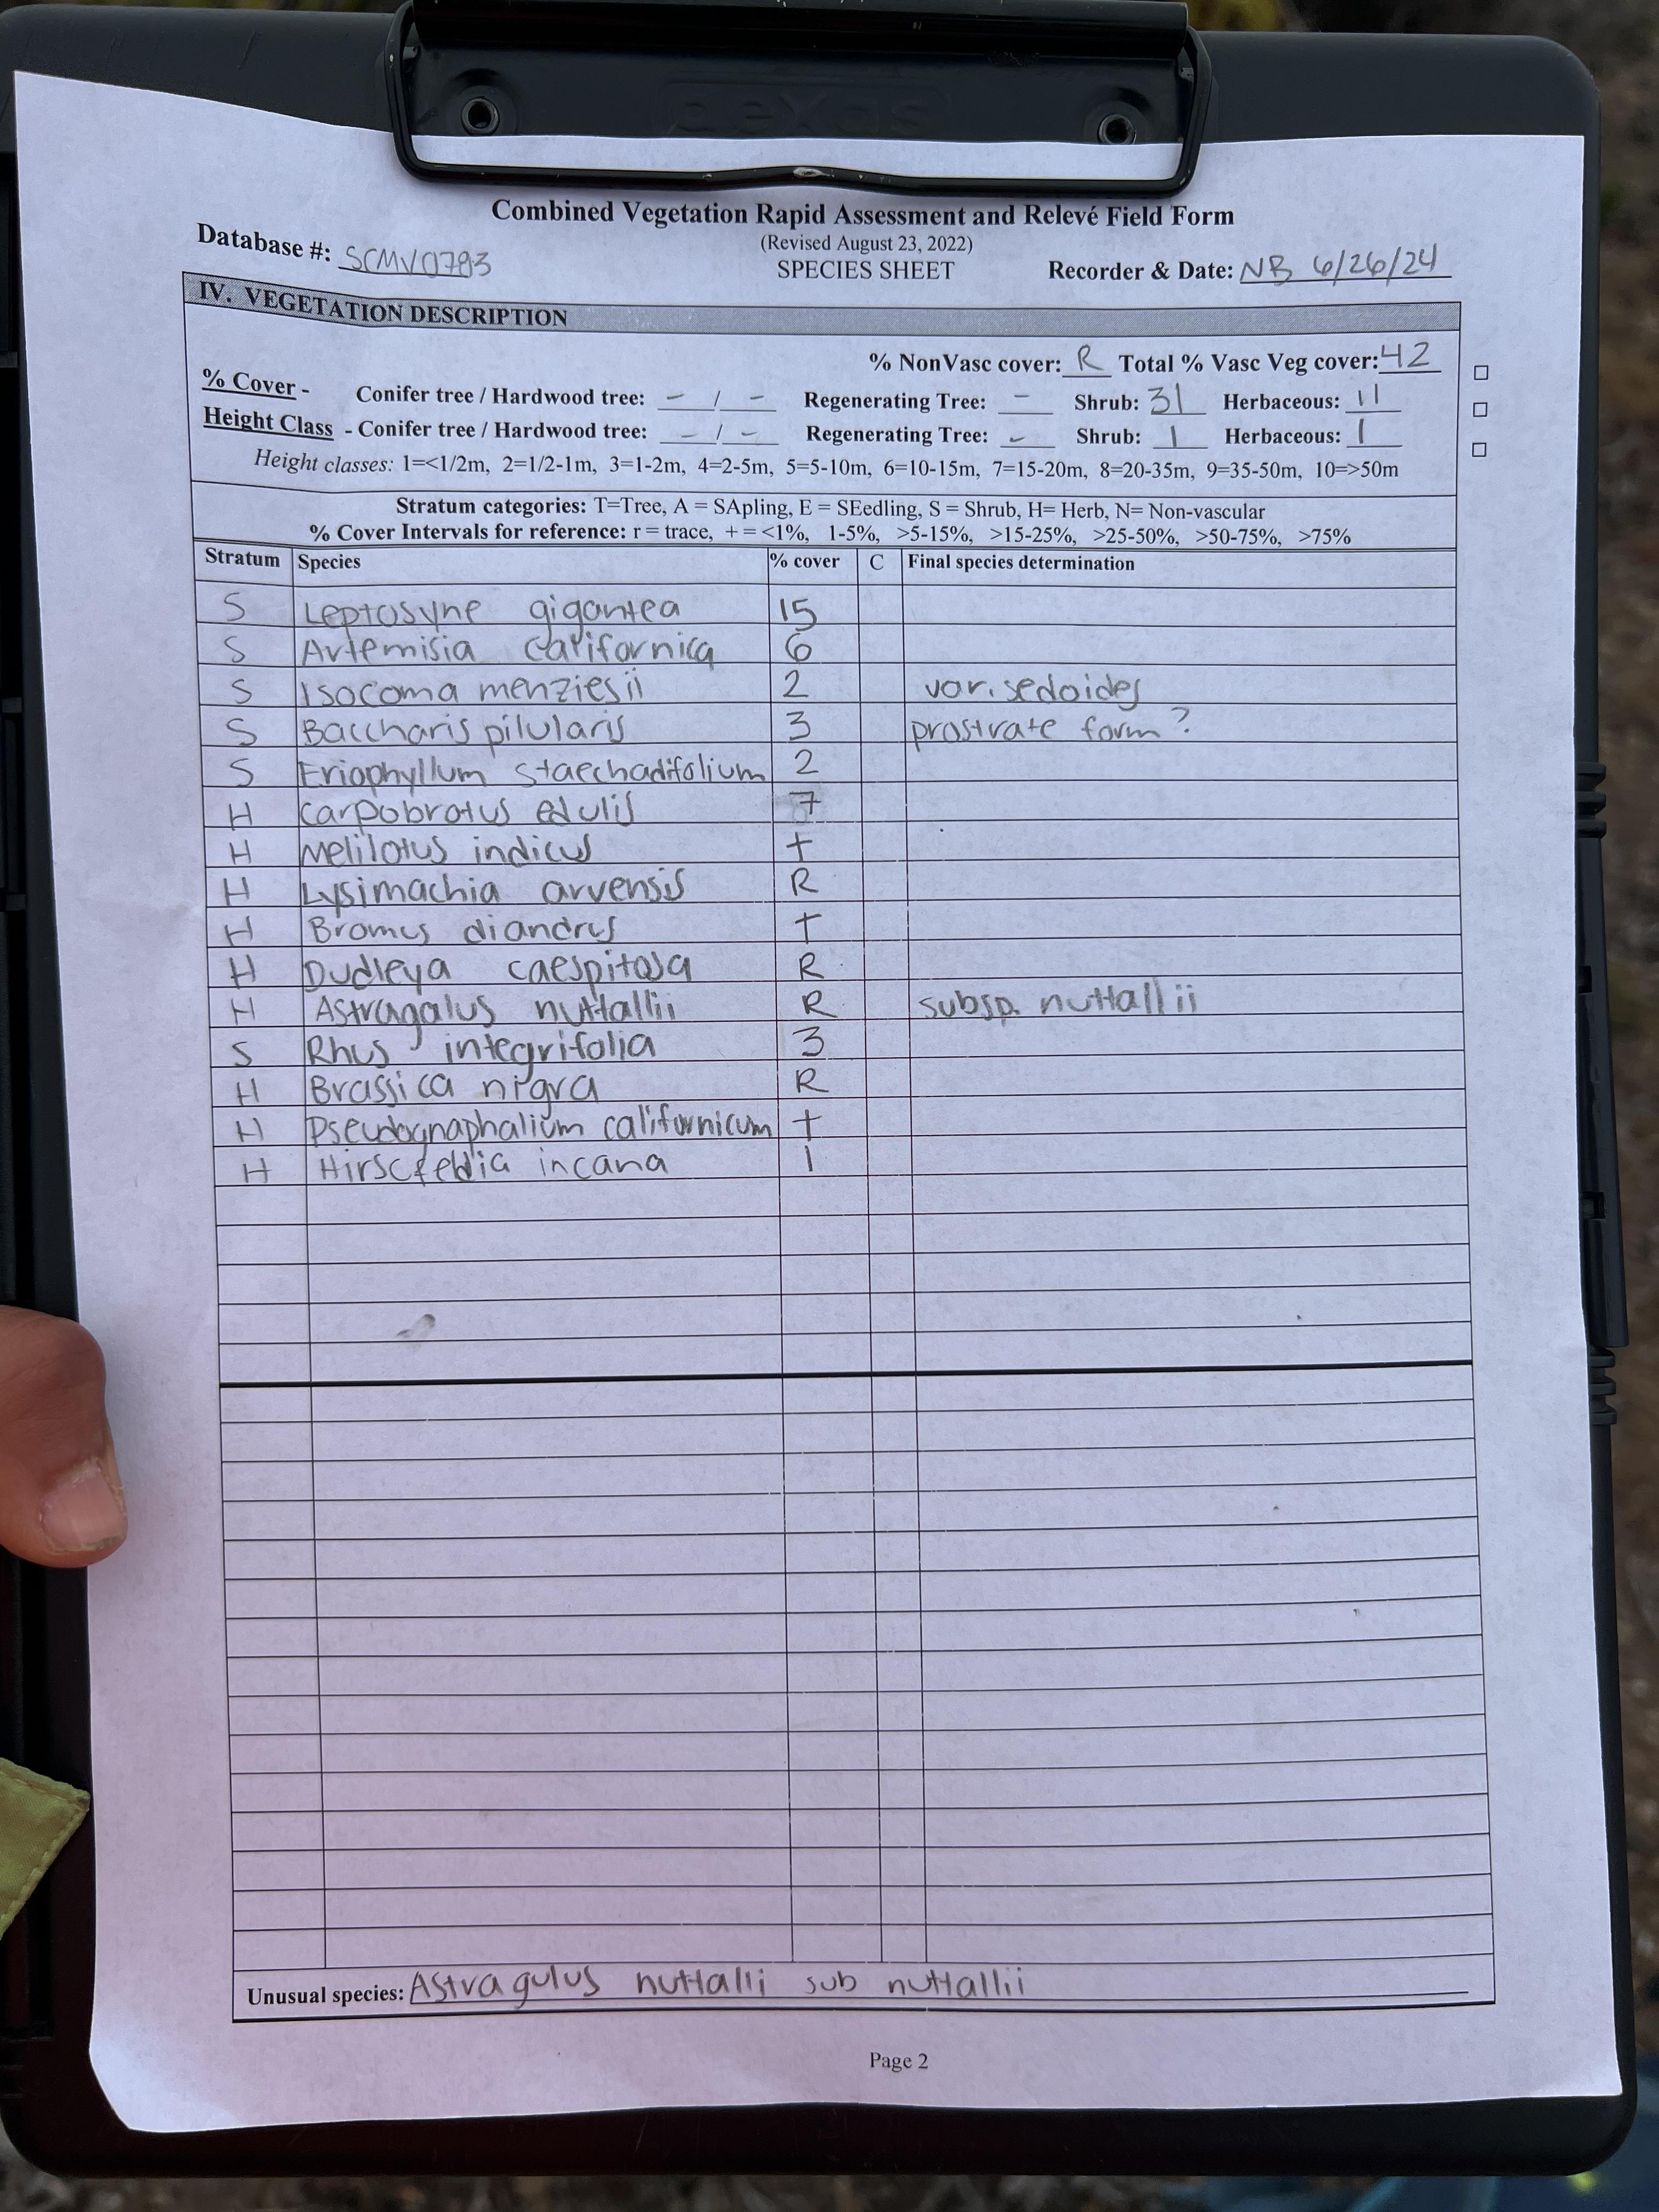 Combined Vegetation Rapid Assessment and Relevé Field Form
(Revised August 23, 2022)
Database #: SCMV0783 SPECIES SHEET Recorder & Date: NB 6/26/24
IV. VEGETATION DESCRIPTION
% NonVasc cover: R Total % Vasc Veg cover: 42
% Cover - Conifer tree / Hardwood tree: - / - Regenerating Tree: - Shrub: 31 Herbaceous: 11
Height Class - Conifer tree / Hardwood tree: - / - Regenerating Tree: - Shrub: 1 Herbaceous: 1
Height classes: 1=<1/2m, 2=1/2-1m, 3=1-2m, 4=2-5m, 5=5-10m, 6=10-15m, 7=15-20m, 8=20-35m, 9=35-50m, 10=>50m
Stratum categories: T=Tree, A = SApling, E = SEedling, S = Shrub, H= Herb, N= Non-vascular
% Cover Intervals for reference: r = trace, + = <1%, 1-5%, >5-15%, >15-25%, >25-50%, >50-75%, >75%
Stratum Species % cover C Final species determination
S Leptosyne gigantea 15
S Artemisia californica 6
S Isocoma menziesii 2 var. sedoides
S Baccharis pilularis 3 prostrate form?
S Eriophyllum staechadifolium 2
H Carpobrotus edulis 7
H Melilotus indicus +
H Lysimachia arvensis R
H Bromus diandrus +
H Dudleya caespitosa R
H Astragalus nuttallii R subsp. nuttallii
S Rhus integrifolia 3
H Brassica nigra R
H Pseudognaphalium californicum +
H Hirscfeldia incana 1
Unusual species: Astragulus nuttalli sub nuttallii
Page 2